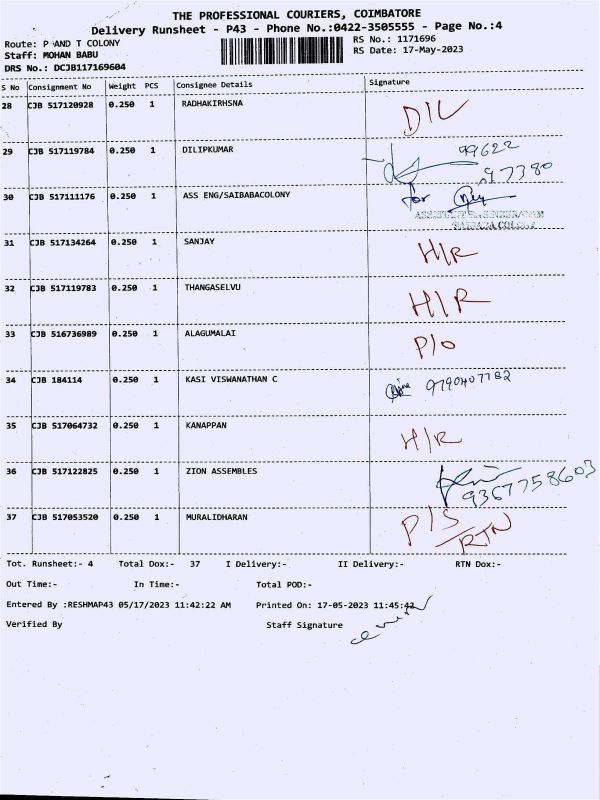 THE PROFESSIONAL COURIERS, COIMBATORE
Delivery Runsheet - P43 - Phone No.:0422-3505555 - Page No.:4
Route: P AND T COLONY RS No.: 1171696
Staff: MOHAN BABU RS Date: 17-May-2023
DRS No.: DCJB117169604
S No Consignment No Weight PCS Consignee Details Signature
28 CJB 517120928 0.250 1 RADHAKIRHSNA D/L
29 CJB 517119784 0.250 1 DILIPKUMAR 99622
97380
30 CJB 517111176 0.250 1 ASS ENG/SAIBABACOLONY for
31 CJB 517134264 0.250 1 SANJAY H/R
32 CJB 517119783 0.250 1 THANGASELVU H/R
33 CJB 516736989 0.250 1 ALAGUMALAI P/O
34 CJB 184114 0.250 1 KASI VISWANATHAN C 9790407782
35 CJB 517064732 0.250 1 KANAPPAN H/R
36 CJB 517122825 0.250 1 ZION ASSEMBLES 9367758603
37 CJB 517053520 0.250 1 MURALIDHARAN P/S
/RTN
Tot. Runsheet:- 4 Total Dox:- 37 I Delivery:- II Delivery:- RTN Dox:-
Out Time:- In Time:- Total POD:-
Entered By :RESHMAP43 05/17/2023 11:42:22 AM Printed On: 17-05-2023 11:45:42
Verified By Staff Signature